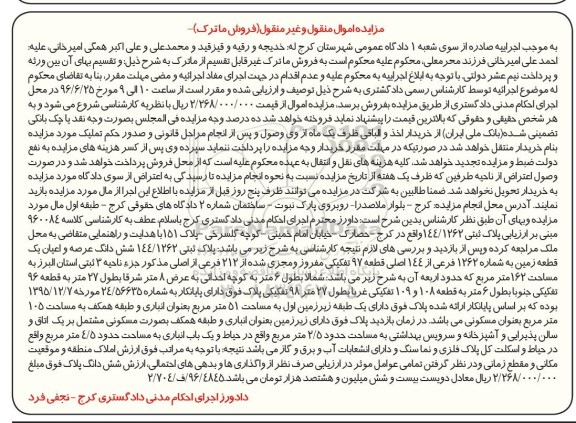 مزایده اموال منقول و غیر منقول(فروش ماترک)-
به موجب اجراییه صادره از سوی شعبه ۱ دادگاه عمومی شهرستان کرج له: خدیجه و رقیه و قیزقید و محمدعلی و علی اکبر همگی امیرخانی، علیه:
احمد علی امیرخانی فرزند محرمعلی، محکوم علیه محکوم است به فروش ماترک غیرقابل تقسیم از ماترک به شرح ذیل: و تقسیم بهای آن بین ورثه
و پرداخت نیم عشر دولتی. با توجه به ابلاغ اجراییه به محکوم علیه و عدم اقدام در جهت اجرای مفاد اجرائیه و مضی مهلت مقرر، بنا به تقاضای محکوم
له موضوع اجرائیه توسط کارشناس رسمی دادگستری به شرح ذیل توصیف و ارزیابی شده و مقرر است از ساعت ۱۰ الی ۹ مورخ ۹۶/۶/۲۵ در محل
اجرای احکام مدنی دادگستری از طریق مزایده بفروش برسد. مزایده اموال از قیمت ۲/۲۶۸/۰۰۰/۰۰۰ ریال با نظریه کارشناسی شروع می شود و به
هر شخص حقیقی و حقوقی که بالاترین قیمت را پیشنهاد نماید فروخته خواهد شد ده درصد وجه مزایده فی المجلس بصورت وجه نقد یا چک بانکی
تضمینی شده(بانک ملی ایران) از خریدار اخذ و الباقی ظرف یک ماه از وی وصول و پس از انجام مراحل قانونی و صدور حکم تملیک مورد مزایده
بنام خریدار منتقل خواهد شد. در صورتیکه در مهلت مقرر خریدار وجه مزایده را پرداخت ننماید سپرده وی پس از کسر هزینه های مزایده به نفع
دولت ضبط و مزایده تجدید خواهد شد. کلیه هزینه های نقل و انتقال به عهده محکوم علیه است که از محل فروش پرداخت خواهد شد و در صورت
وصول اعتراض از ناحیه طرفین که ظرف یک هفته از تاریخ مزایده نسبت به نحوه انجام مزایده تا رسیدگی به اعتراض از سوی دادگاه مورد مزایده
به خریدار تحویل نخواهد شد. ضمنا طالبین به شرکت در مزایده می توانند ظرف پنج روز قبل از مزایده با اطلاع این اجرا از مال مورد مزایده بازدید
نمایند. آدرس محل انجام مزایده: کرج - بلوار ملاصدرا- روبروی پارک نبوت - ساختمان شماره ۲ دادگاه های حقوقی کرج - طبقه اول مال مورد
مزایده وبهای آن طبق نظر کارشناس بدین شرح است: داورز محترم اجرای احکام مدنی دادگستری کرج باسلام، عطف به کارشناسی کلاسه ۹۶۰۰۸۴
مبنی بر ارزیابی پلاک ثبتی ۱۴۴/۱۲۶۲ واقع در کرج- حصارک- خیابان امام خمینی- کوچه گلسرخی- پلاک ۱۵۱ با هدایت و راهنمایی متقاضی به محل
ملک مراجعه کرده و پس از بازدید و بررسی های لازم نتیجه کارشناسی به شرح زیر می باشد: پلاک ثبتی ۱۴۴/۱۲۶۲ شش دانگ عرصه و اعیان یک
قطعه زمین به شماره ۱۲۶۲ فرعی از ۱۴۴ اصلی قطعه ۹۷ تفکیکی مفروز و مجزی شده از ۲۱۲ فرعی از اصلی مذکور جزء ناحیه ۳ ثبتی استان البرز به
مساحت ۱۶۲متر مربع که حدود اربعه آن به شرح زیر می باشد: شمالا بطول ۶ متر به کوچه احداثی به عرض ۸ متر شرقا بطول ۲۷ متر به قطعه ۹۶
تفکیکی جنوبا بطول ۶ متر به قطعه ۱۰۸ و ۱۰۹ تفکیکی غربا بطول ۲۷ متر ۹۸ تفکیکی پلاک فوق دارای پایانکار به شماره ۲۴/۵۶۶۳۵ مورخه ۱۳۹۵/۱۲/۷
بوده که بر اساس پایانکار ارائه شده پلاک فوق دارای یک طبقه زیرزمین اول به مساحت ۵۱ متر مربع بعنوان انباری و طبقه همکف به مساحت ۱۰۵
متر مربع بعنوان مسکونی می باشد. در زمان بازدید پلاک فوق دارای زیرزمین بعنوان انباری و طبقه همکف بصورت مسکونی مشتمل بر یک اتاق و
سالن پذیرایی و آشپزخانه و سرویس بهداشتی به مساحت حدود ۲/۵ متر مربع واقع در حیاط و یک باب انباری به مساحت حدود ۴/۵ متر مربع واقع
در حیاط و اسکلت کل پلاک فلزی و نما سنگ و دارای انشعابات آب و برق و گاز می باشد نتیجه: با توجه به مراتب فوق ارزش املاک منطقه و موقعیت
مکانی و مقطع زمانی و در نظر گرفتن تمامی عوامل موثر در ارزیابی صرف نظر از واگذاری ها و بدهی های احتمالی، ارزش شش دانگ پلاک فوق مبلغ
۲/۲۶۸/۰۰۰/۰۰۰ ریال معادل دویست بیست و شش میلیون و هشتصد هزار تومان می باشد. ۹۶/۴۸۴۵/ف/۲/۷۰۴
دادورز اجرای احکام مدنی دادگستری کرج - نجفی فرد